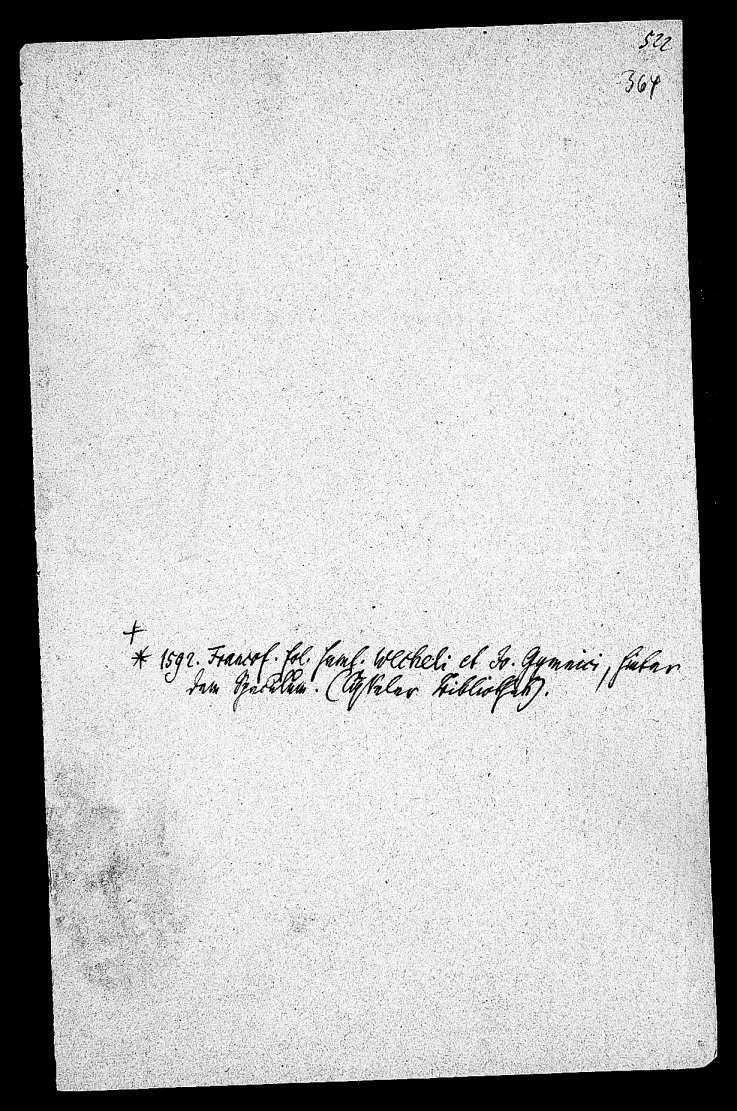 522
364
+
* 1592. Francof. fol. hered. Wecheli et Jo. Gymnici, hinter
dem Speculum. (Casseler Bibliothek).